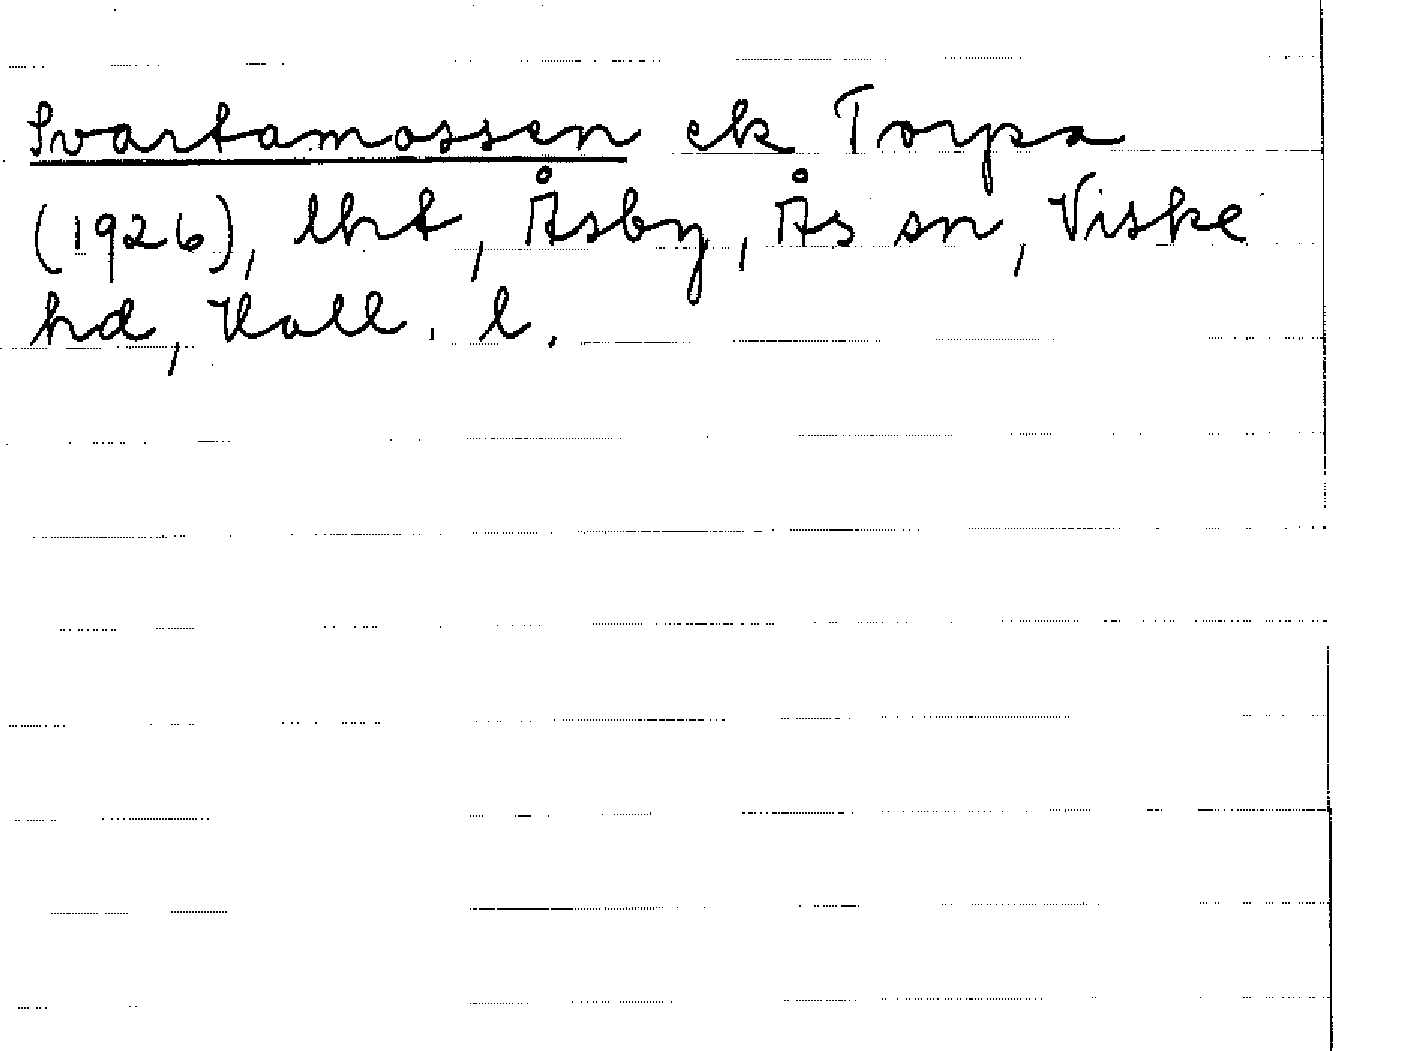 Svartamossen ek Torpa
(1926), lht, Åsby, Ås sn, Viske
hd, Hall. l.